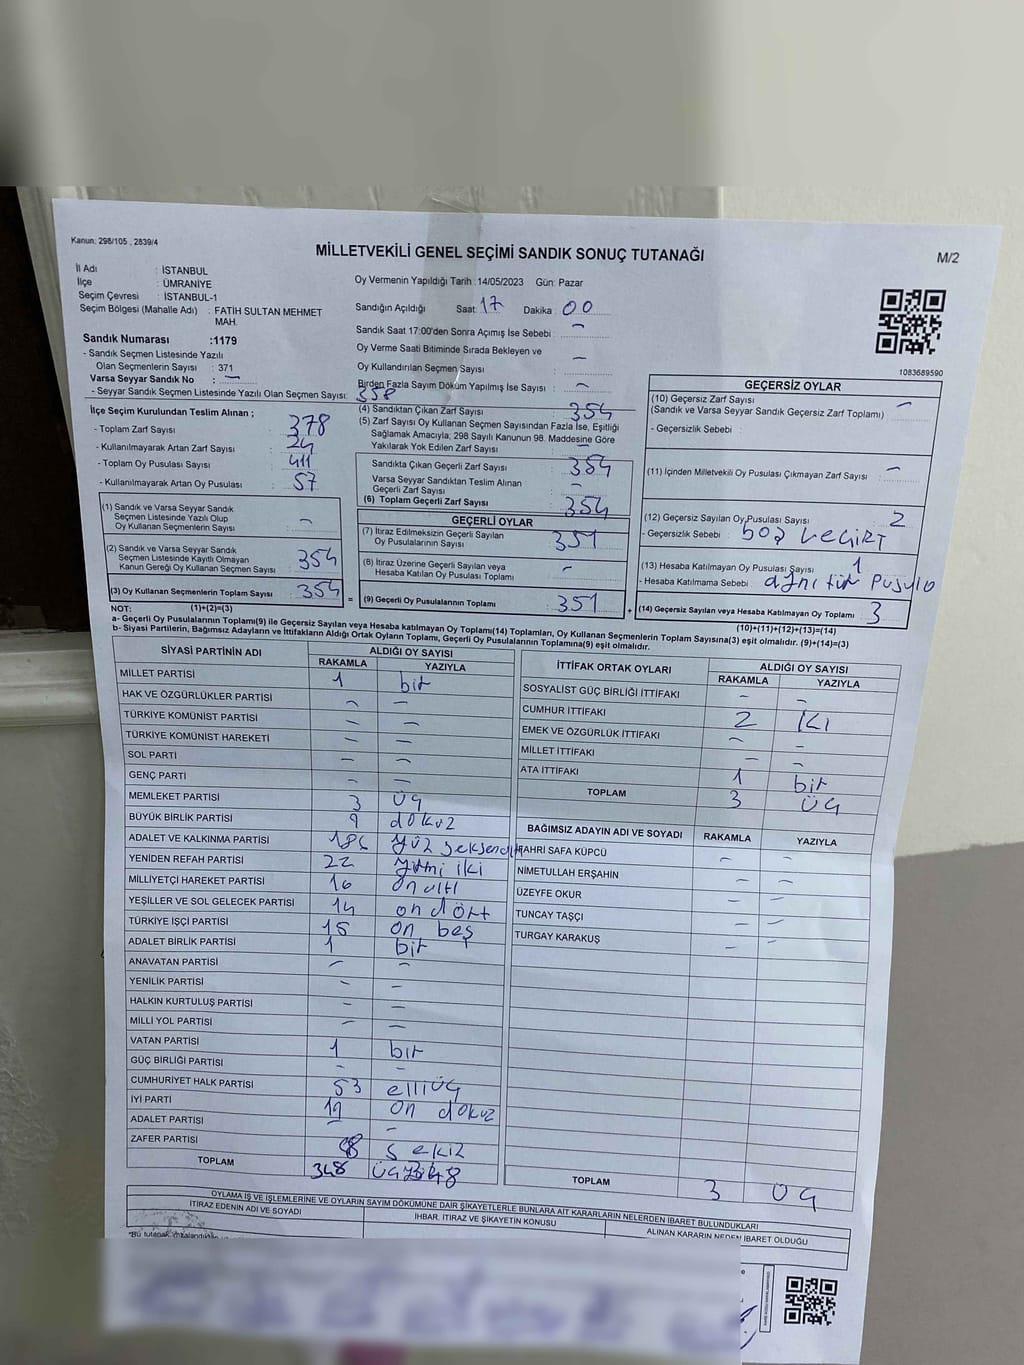 Kanun: 298/105 , 2839/4
MİLLETVEKİLİ GENEL SEÇİMİ SANDIK SONUÇ TUTANAĞI
M/2
İl Adı : İSTANBUL
İlçe : ÜMRANİYE
Seçim Çevresi : İSTANBUL-1
Seçim Bölgesi (Mahalle Adı) : FATİH SULTAN MEHMET
MAH.
Sandık Numarası :1179
- Sandık Seçmen Listesinde Yazılı
Olan Seçmenlerin Sayısı : 371
Varsa Seyyar Sandık No : –
- Seyyar Sandık Seçmen Listesinde Yazılı Olan Seçmen Sayısı: 358
Oy Vermenin Yapıldığı Tarih :14/05/2023 Gün: Pazar
Sandığın Açıldığı Saat: 17 Dakika : 00
Sandık Saat 17:00'den Sonra Açımış İse Sebebi : –
Oy Verme Saati Bitiminde Sırada Bekleyen ve
Oy Kullandırılan Seçmen Sayısı : –
Birden Fazla Sayım Döküm Yapılmış İse Sayısı : –
1083689590
İlçe Seçim Kurulundan Teslim Alınan ;
- Toplam Zarf Sayısı : 378
- Kullanılmayarak Artan Zarf Sayısı : 24
- Toplam Oy Pusulası Sayısı : 411
- Kullanılmayarak Artan Oy Pusulası : 57
(1) Sandık ve Varsa Seyyar Sandık
Seçmen Listesinde Yazılı Olup
Oy Kullanan Seçmenlerin Sayısı : –
(2) Sandık ve Varsa Seyyar Sandık
Seçmen Listesinde Kayıtlı Olmayan
Kanun Gereği Oy Kullanan Seçmen Sayısı : 354
(3) Oy Kullanan Seçmenlerin Toplam Sayısı : 354 =
(4) Sandıktan Çıkan Zarf Sayısı : 354
(5) Zarf Sayısı Oy Kullanan Seçmen Sayısından Fazla İse, Eşitliği
Sağlamak Amacıyla, 298 Sayılı Kanunun 98. Maddesine Göre
Yakılarak Yok Edilen Zarf Sayısı : –
Sandıkta Çıkan Geçerli Zarf Sayısı : 354
Varsa Seyyar Sandıktan Teslim Alınan
Geçerli Zarf Sayısı : –
(6) Toplam Geçerli Zarf Sayısı : 354
GEÇERLİ OYLAR
(7) İtiraz Edilmeksizin Geçerli Sayılan
Oy Pusulalarının Sayısı : 351
(8) İtiraz Üzerine Geçerli Sayılan veya
Hesaba Katılan Oy Pusulası Toplamı : –
(9) Geçerli Oy Pusulalarının Toplamı : 351 +
GEÇERSİZ OYLAR
(10) Geçersiz Zarf Sayısı : –
(Sandık ve Varsa Seyyar Sandık Geçersiz Zarf Toplamı)
- Geçersizlik Sebebi :
(11) İçinden Milletvekili Oy Pusulası Çıkmayan Zarf Sayısı : –
(12) Geçersiz Sayılan Oy Pusulası Sayısı : 2
- Geçersizlik Sebebi : boş
(13) Hesaba Katılmayan Oy Pusulası Sayısı : 1
- Hesaba Katılmama Sebebi : aynı tür Pusula
(14) Geçersiz Sayılan veya Hesaba Katılmayan Oy Toplamı : 3
NOT: (1)+(2)=(3)
(10)+(11)+(12)+(13)=(14)
a- Geçerli Oy Pusulaları Toplamı(9) ile Geçersiz Sayılan veya Hesaba katılmayan Oy Toplamı(14) Toplamları, Oy Kullanan Seçmenlerin Toplam Sayısına(3) eşit olmalıdır. (9)+(14)=(3)
b- Siyasi Partilerin, Bağımsız Adayların ve İttifakların Aldığı Ortak Oyların Toplamı, Geçerli Oy Pusulalarının Toplamına(9) eşit olmalıdır.
SİYASİ PARTİNİN ADI ALDIĞI OY SAYISI
RAKAMLA YAZIYLA
MİLLET PARTİSİ 1 bir
HAK VE ÖZGÜRLÜKLER PARTİSİ – –
TÜRKİYE KOMÜNİST PARTİSİ – –
TÜRKİYE KOMÜNİST HAREKETİ – –
SOL PARTİ – –
GENÇ PARTİ – –
MEMLEKET PARTİSİ 3 üç
BÜYÜK BİRLİK PARTİSİ 9 dokuz
ADALET VE KALKINMA PARTİSİ yüz
YENİDEN REFAH PARTİSİ 22 yirmi iki
MİLLİYETÇİ HAREKET PARTİSİ 16 on altı
YEŞİLLER VE SOL GELECEK PARTİSİ 14 on dört
TÜRKİYE İŞÇİ PARTİSİ 15 on beş
ADALET BİRLİK PARTİSİ 1 bir
ANAVATAN PARTİSİ – –
YENİLİK PARTİSİ – –
HALKIN KURTULUŞ PARTİSİ – –
MİLLİ YOL PARTİSİ – –
VATAN PARTİSİ 1 bir
GÜÇ BİRLİĞİ PARTİSİ – –
CUMHURİYET HALK PARTİSİ 53 elliüç
İYİ PARTİ 19 on dokuz
ADALET PARTİSİ – –
ZAFER PARTİSİ 8 sekiz
TOPLAM 348
İTTİFAK ORTAK OYLARI ALDIĞI OY SAYISI
RAKAMLA YAZIYLA
SOSYALİST GÜÇ BİRLİĞİ İTTİFAKI – –
CUMHUR İTTİFAKI 2 iki
EMEK VE ÖZGÜRLÜK İTTİFAKI – –
MİLLET İTTİFAKI – –
ATA İTTİFAKI 1 bir
TOPLAM 3 üç
BAĞIMSIZ ADAYIN ADI VE SOYADI RAKAMLA YAZIYLA
FAHRİ SAFA KÜPCÜ – –
NİMETULLAH ERŞAHİN – –
ÜZEYFE OKUR – –
TUNCAY TAŞÇI – –
TURGAY KARAKUŞ – –
TOPLAM 3 üç
OYLAMA İŞ VE İŞLEMLERİNE VE OYLARIN SAYIM DÖKÜMÜNE DAİR ŞİKAYETLERLE BUNLARA AİT KARARLARIN NELERDEN İBARET BULUNDUKLARI
İTİRAZ EDENİN ADI VE SOYADI
İHBAR, İTİRAZ VE ŞİKAYETİN KONUSU
ALINAN KARARIN NEDEN İBARET OLDUĞU